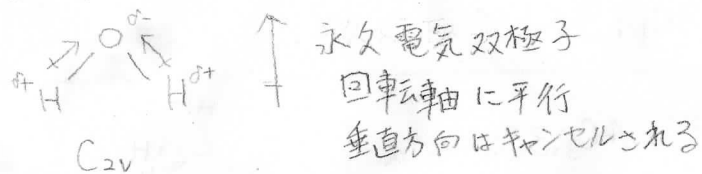 O δ-
δ+ H H δ+
C2v
永久電気双極子
回転軸に平行
垂直方向はキャンセルされる